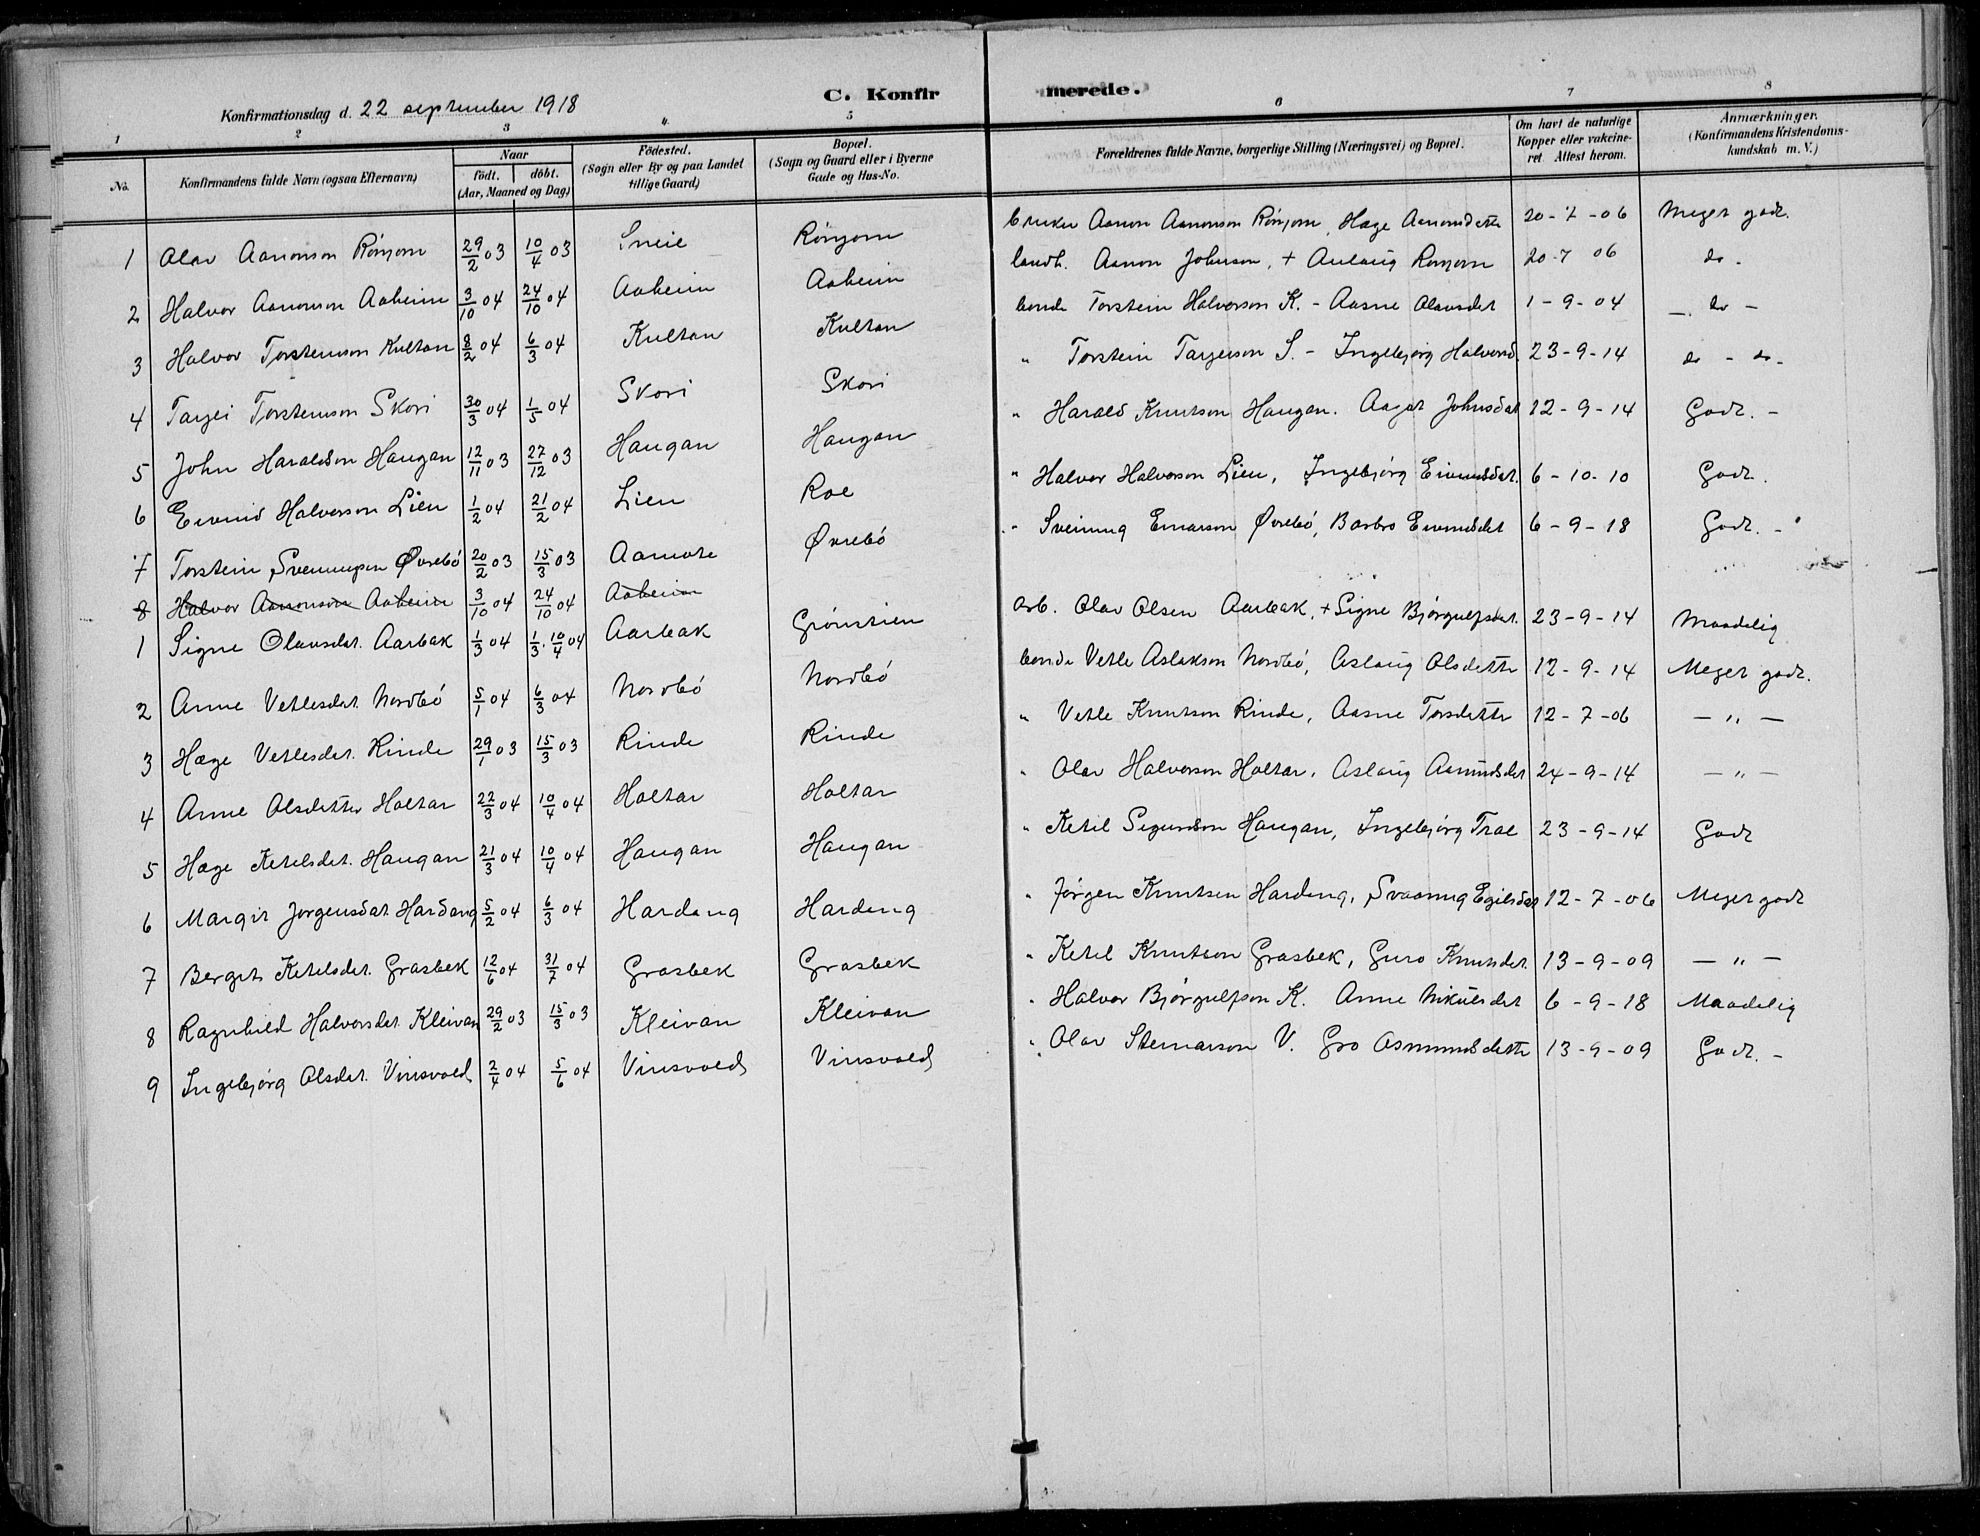 Konfirmationsdag d. 22 september 1918
C. Konfirmerede.
1 2 3 4. 5 6 7 8
No. Konfirmandens fulde Navn (ogsaa Efternavn) Naar født. døbt. (Aar, Maaned og Dag) Fødested. (Sogn eller By og paa Landet tillige Gaard) Bopæl. (Sogn og Gaard eller i Byerne Gade og Hus-No. Forældrenes fulde Navne, borgerlige Stilling (Næringsvei) og Bopæl. Om havt de naturlige Kopper eller vakcineret Attest herom. Anmærkninger. (Konfirmandens Kristendomskundskab m. V.)
1 Olav Aanonson Rönjom 29/2 03 10/4 03 Rönjom bruker Aanon Aanonson Rönjom, Hæge Aamundsdtr 20-7-06 Meget godt.
2 Halvor Aanonson Aaheim 3/10 04 24/10 04 Aaheim Aaheim landh. Aanon Johnson, + Aslaug Romjom 20-7 06 do -
3 Halvor Torsteinson Kultan 8/2 04 6/3 04 Kultan Kultan bonde Torstein Halvorson K. - Aasne Olavsdat 1-9-04 -. do -
4 Tarjei Torsteinson Skori 30/3 04 1/5 04 Skori Skori " Torstein Tarjeison S. - Ingebjørg Halvorsd. 23-9-14 do - do-
5 John Haraldson Haugan 12/11 03 27/12 03 Haugan Haugan " Harald Knutson Haugan. Aagot Johnsdat 12-9-14 Godt. -
6 Eivind Halvorson Lien 1/2 04 21/2 04 Lien Roe " Halvor Halvorson Lien, Ingebjørg Eivindsdat. 6-10-10 Godt.
7 Torstein Sveinungson Øvrebö 20/2 03 15/3 03 Aamote Øvrebö " Sveinung Einarson Øvrebö, Barbro Eivindsdat 6-9-18 Godt. -
8 Halvor Aanonson Aaheim 3/10 04 24/10 04 Aaheim
1 Signe Olavsdat. Aarbak 1/3 04 1/3. 10/4 04 Aarbak Grönstien arb. Olav Olsen Aarbak, + Signe Bjørgulfsdat. 23-9-14 Maadelig
2 Anne Vetlesdat. Nordbö 5/1 04 6/3 04 Nordbö Nordbö bonde Vetle Aslakson Nordbö, Aslaug Olsdatter 12-9-14 Meget godt.
3 Hæge Vetlesdat. Rinde 29/1 03 15/3 03 Rinde Rinde " Vetle Knutson Rinde, Aasne Torsdatter 12-7-06 - " -
4 Anne Olsdatter Holtar 22/3 04 10/4 04 Holtar Holtar " Olav Halvorson Holtar, Aslaug Aamundsdat 24-9-14 - " -
5 Hæge Ketilsdat. Haugan 21/3 04 10/4 04 Haugan Haugan " Ketil Sigurdson Haugan, Ingebjørg Trae 23-9-14 Godt
6 Margit Jørgensdat Hardang 5/2 04 6/3 04 Hardang Hardang " Jørgen Knutsen Hardang, Svaanug Egilsdat 12-7-06 Meget godt
7 Bergit Ketilsdat. Grasbek 12/6 04 31/7 04 Grasbek Grasbek " Ketil Knutson Grasbek, Guro Knutsdat. 13-9-09 - " -
8 Ragnhild Halvorsdat Kleivan 29/2 03 15/3 03 Kleivan Kleivan " Halvor Bjørgulfson K. Anne Nikulsdat 6-9-18 Maadelig
9 Ingebjørg Olsdat. Vinsvold 2/4 04 5/6 04 Vinsvold Vinsvold " Olav Steinarson V. Gro Asmundsdatter 13-9-09 Godt. -